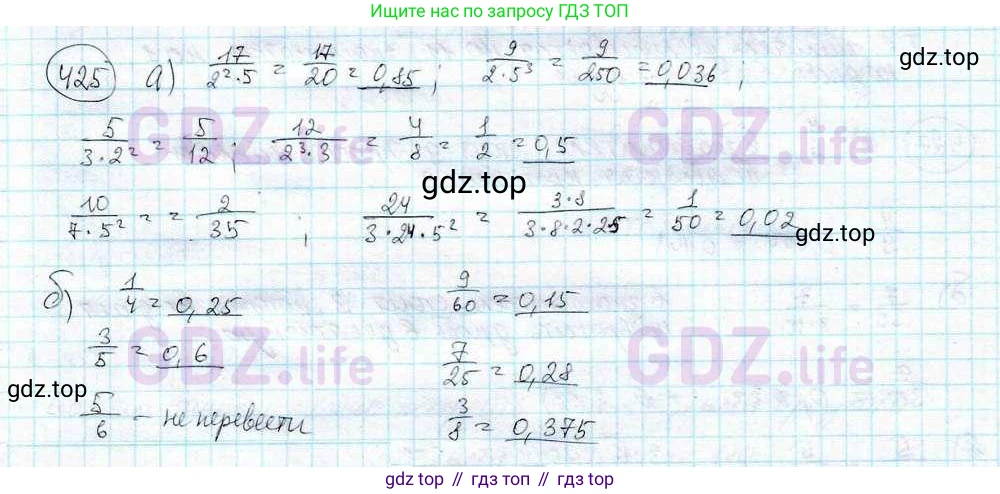 Ищите ещё по запросу ГДЗ ТОП
425 а) 17/2²·5 = 17/20 = 0,85 ; 9/2·5³ = 9/250 = 0,036 ;
5/3·2² = 5/12 ; 12/2³·3 = 4/8 = 1/2 = 0,5
GDZ.life GDZ.life
gdz.top
10/7·5² = = 2/35 ; 24/3·24·5² = 3·8/3·8·2·25 = 1/50 = 0,02
б) 1/4 = 0,25 9/60 = 0,15
3/5 = 0,6 7/25 = 0,28
GDZ.life GDZ.life
gdz.top
5/6 - не перевести 3/8 = 0,375
gdz.top // гдз.топ // гдз топ